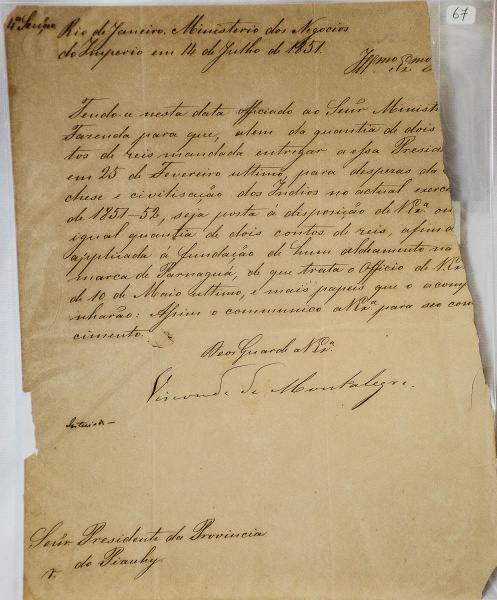 67
4ª Secção Rio de Janeiro. Ministerio dos Negocios
do Imperio em 14 de Julho de 1851.
Illmo. e Exmo.
Tendo-se nesta data officiado ao Senr. Minist
Fazenda para que, alem da quantia de dois
tos de reis mandada entregar a essa Presid
em 25 de Fevereiro ultimo, para despesas da
chese e civilisação dos Indios no actual exerc
de 1851-52, seja posta á disposição de V. Exª. ou
igual quantia de dois contos de reis, afim d
applicada á fundação de hum aldeamento na
marca de Parnaguá, de que trata o Officio de V. Ex
de 10 de Maio ultimo, e mais papeis que o acomp
nharão: Assim o communico a V. Exª. para seo con
cimento.
Deos Guarde a V. Exª.
Visconde de Mont'alegre.
Senr. Presidente da Provincia
do Piauhy